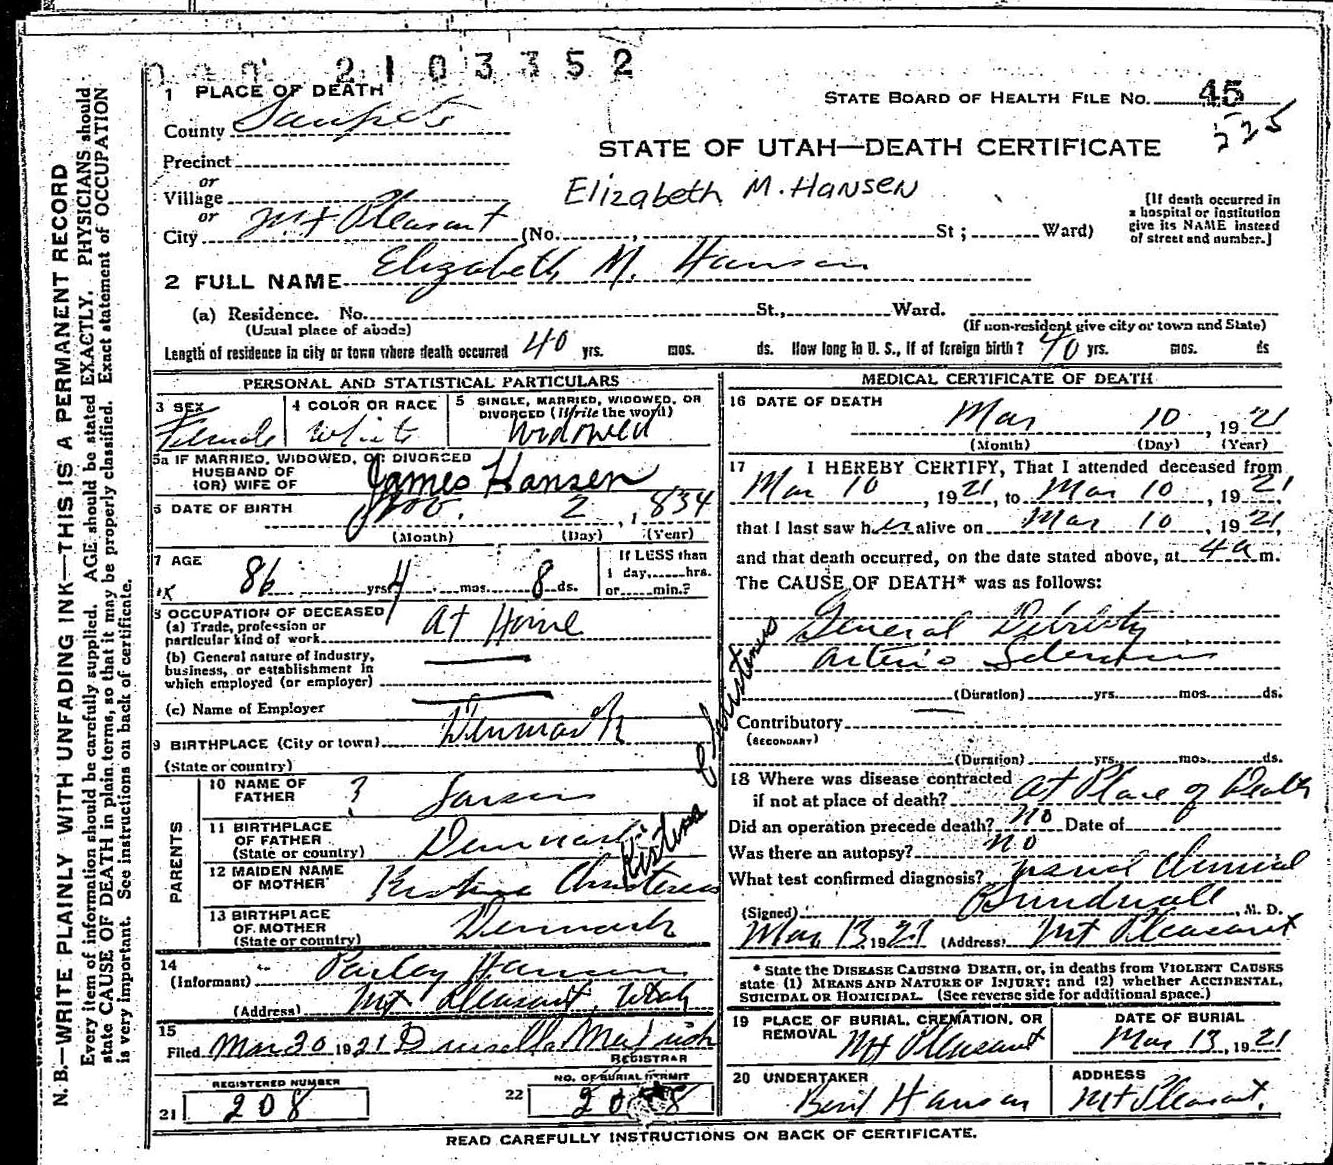 2103352
1 PLACE OF DEATH
STATE BOARD OF HEALTH FILE No. 45
County Sanpete
525
STATE OF UTAH—DEATH CERTIFICATE
Precinct
or
Elizabeth M. Hansen
Village
or
City Mt Pleasant (No. , St ; Ward)
[If death occurred in
a hospital or institution
give its NAME instead
of street and number.]
2 FULL NAME Elizabeth M. Hansen
(a) Residence. No. St., Ward.
(Usual place of abode) (If non-resident give city or town and State)
Length of residence in city or town where death occurred 40 yrs. mos. ds. How long in U. S., if of foreign birth? 40 yrs. mos. ds
PERSONAL AND STATISTICAL PARTICULARS
3 SEX 4 COLOR OR RACE 5 SINGLE, MARRIED, WIDOWED, OR
DIVORCED (Write the word)
Female White Widowed
5a IF MARRIED, WIDOWED, OR DIVORCED
HUSBAND OF
(OR) WIFE OF James Hansen
6 DATE OF BIRTH Nov. 2, 1834
(Month) (Day) (Year)
7 AGE If LESS than
1 day, hrs.
86 yrs 4 mos. 8 ds. or min.?
8 OCCUPATION OF DECEASED
(a) Trade, profession or
particular kind of work At Home
(b) General nature of Industry,
business, or establishment in
which employed (or employer)
(c) Name of Employer
9 BIRTHPLACE (City or town) Denmark
(State or country)
PARENTS
10 NAME OF
FATHER ? Larsen
11 BIRTHPLACE
OF FATHER
(State or country) Denmark
12 MAIDEN NAME
OF MOTHER Kistina Christensen
Kistina Christensen
13 BIRTHPLACE
OF MOTHER
(State or country) Denmark
14
(Informant) Parley Hansen
(Address) Mt Pleasant, Utah
15
Filed Mar 20 1921 Drusilla
REGISTRAR
REGISTERED NUMBER
21 208
NO. OF BURIAL PERMIT
22 208
MEDICAL CERTIFICATE OF DEATH
16 DATE OF DEATH
Mar 10, 1921
(Month) (Day) (Year)
17 I HEREBY CERTIFY, That I attended deceased from
Mar 10, 1921, to Mar 10, 1921,
that I last saw her alive on Mar 10, 1921,
and that death occurred, on the date stated above, at 4a m.
The CAUSE OF DEATH* was as follows:
General Debility
Arterio Sclerosis
(Duration) yrs. mos. ds.
Contributory
(SECONDARY)
(Duration) yrs. mos. ds.
18 Where was disease contracted
if not at place of death? At Place of Death
Did an operation precede death? No Date of
Was there an autopsy? No
What test confirmed diagnosis? Clinical
(Signed) Sundwall, M. D.
Mar 13 1921 (Address) Mt Pleasant
* State the DISEASE CAUSING DEATH, or, in deaths from VIOLENT CAUSES
state (1) MEANS AND NATURE OF INJURY; and (2) whether ACCIDENTAL,
SUICIDAL OR HOMICIDAL. (See reverse side for additional space.)
19 PLACE OF BURIAL, CREMATION, OR
REMOVAL Mt Pleasant
DATE OF BURIAL
Mar 13, 1921
20 UNDERTAKER
Hansen
ADDRESS
Mt Pleasant.
READ CAREFULLY INSTRUCTIONS ON BACK OF CERTIFICATE.
N. B.—WRITE PLAINLY WITH UNFADING INK—THIS IS A PERMANENT RECORD
Every item of information should be carefully supplied. AGE should be stated EXACTLY. PHYSICIANS should
state CAUSE OF DEATH in plain terms, so that it may be properly classified. Exact statement of OCCUPATION
is very important. See instructions on back of certificate.